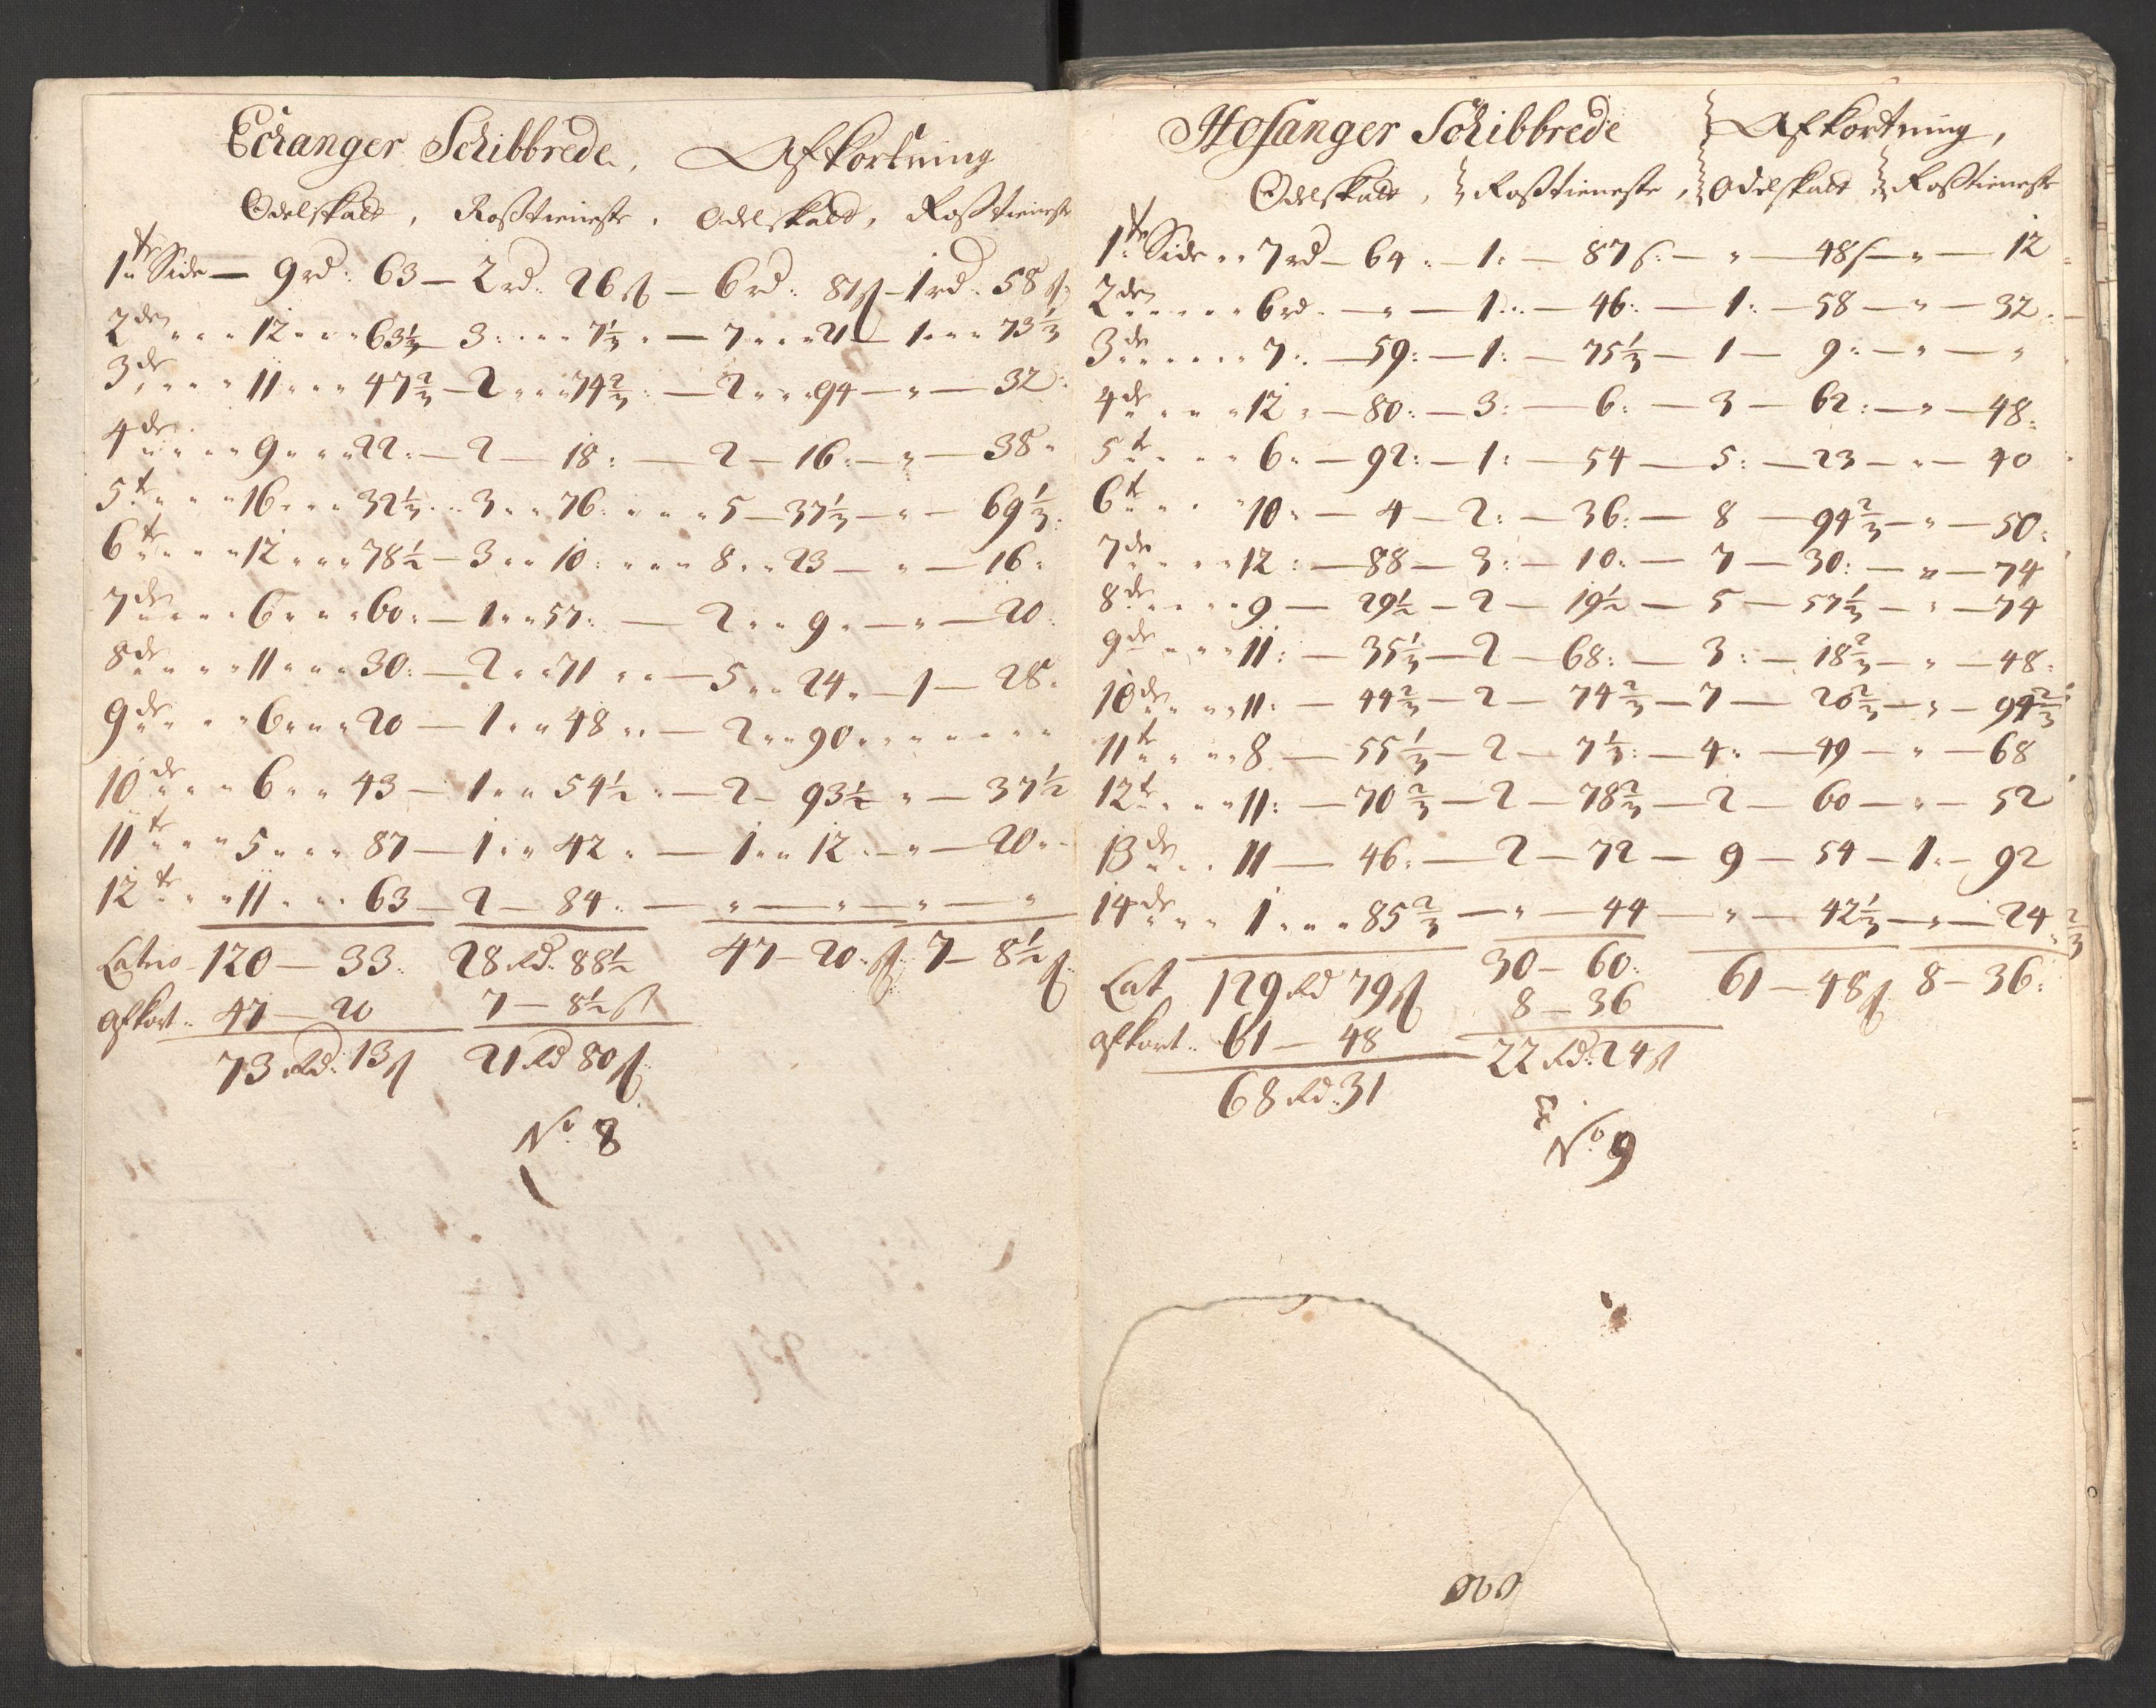 Echanger Schibbrede, Afkortning
Odelskatt, Rosstieneste, Odelskatt, Rosstieneste
1te Side — 9 rd: 63 — 2 rd: 26 ß — 6 rd: 81 ß — 1 rd: 58 ß
2den 12 63⅓ — 3 7⅓ — 7 21 — 1 73⅓
3de 11 47⅔ — 2 74⅔ — 2 94 — " — 32:
4de 9 22: — 2 — 18: — 2 — 16: — " — 38
5te 16 32⅓ 3 76: 5 — 37⅓ — " — 69⅓:
6te 12 78½ — 3 10: 8 23 — " — 16:
7de 6 60: — 1 57: — 2 9 — " — 20:
8de 11 30: — 2 71 — 5 24 — 1 — 28
9de 6 20 — 1 48 — 2 90
10de 6 43 — 1 54½ — 2 — 93½ " — 37½
11te 5 87 — 1 42 — 1 12 — " — 20
12te 11 63 — 2 — 84: — " — " — " — "
Latus 120 — 33: 28 Rd: 88½ 47 — 20 ß 7 — 8½ ß
afkort: 47 — 20 7 — 8½ ß
73 Rd: 13 ß 21 Rd 80 ß
No. 8
Hosanger Schibbrede Afkortning,
Odelskatt, Rosstieneste, Odelskatt Rosstieneste
1te Side 7 rd — 64: — 1: — 87 ß: — " — 48 ß — " — 12
2den 6 rd — " — 1: — 46: — 1: — 58 — " — 32
3de 7: — 59: — 1: — 75⅓ — 1 — 9: — " — "
4de 12 — 80: — 3: — 6: — 3 — 62: — " — 48:
5te 6: — 92: — 1: — 54 — 5: — 23 — " — 40
6te 10: — 4 — 2: — 36: — 8 — 94⅔ — " — 50:
7de 12: — 88 — 3: — 10: — 7 — 30: — " — 74
8de 9 — 29½ — 2 — 19½ — 5 — 57⅓ — " — 74
9de 11: — 35⅓ — 2 — 68: — 3: — 18⅔ — " — 48:
10de 11: — 44⅔ — 2 — 74⅔ — 7 — 26⅔ — " — 94⅔
11te 8 — 55⅓ — 2 — 7⅓: — 4: — 49 — " — 68
12te 11: — 70⅔ — 2 — 78⅔ — 2 — 60 — " — 52
13de 11 — 46: — 2 — 72 — 9 — 54 — 1: — 92
14de 1 85⅔ — " — 44 — " — 42⅓ — " — 24⅔
Lat 129 Rd 79 ß 30 — 60: 61 — 48 ß 8 — 36:
afkort: 61 — 48 8 — 36
68 Rd: 31 22 Rd: 24 ß
No 9